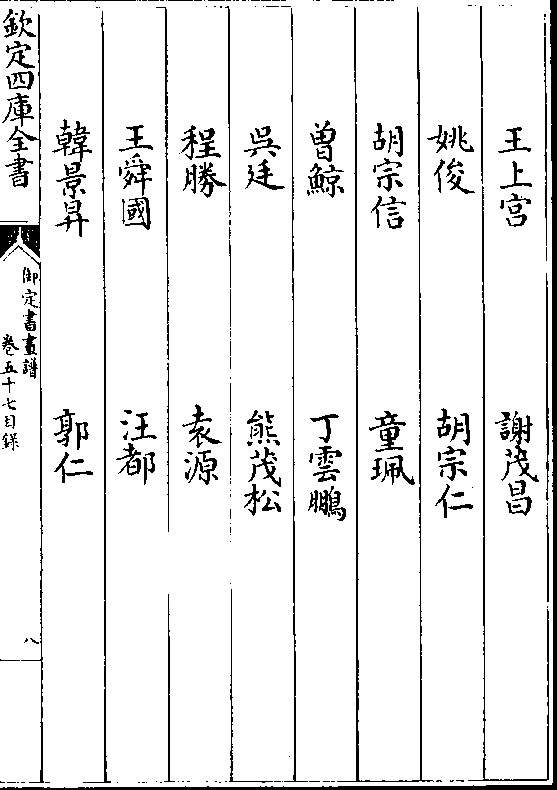 王上宫　謝茂昌
姚俊　胡宗仁
胡宗信　童珮
曽鯨　丁雲鵬
吳廷　熊茂松
程勝　袁源
王舜國　汪都
韓景昇　郭仁
欽定四庫全書
御定書畫譜
卷五十七目録
八